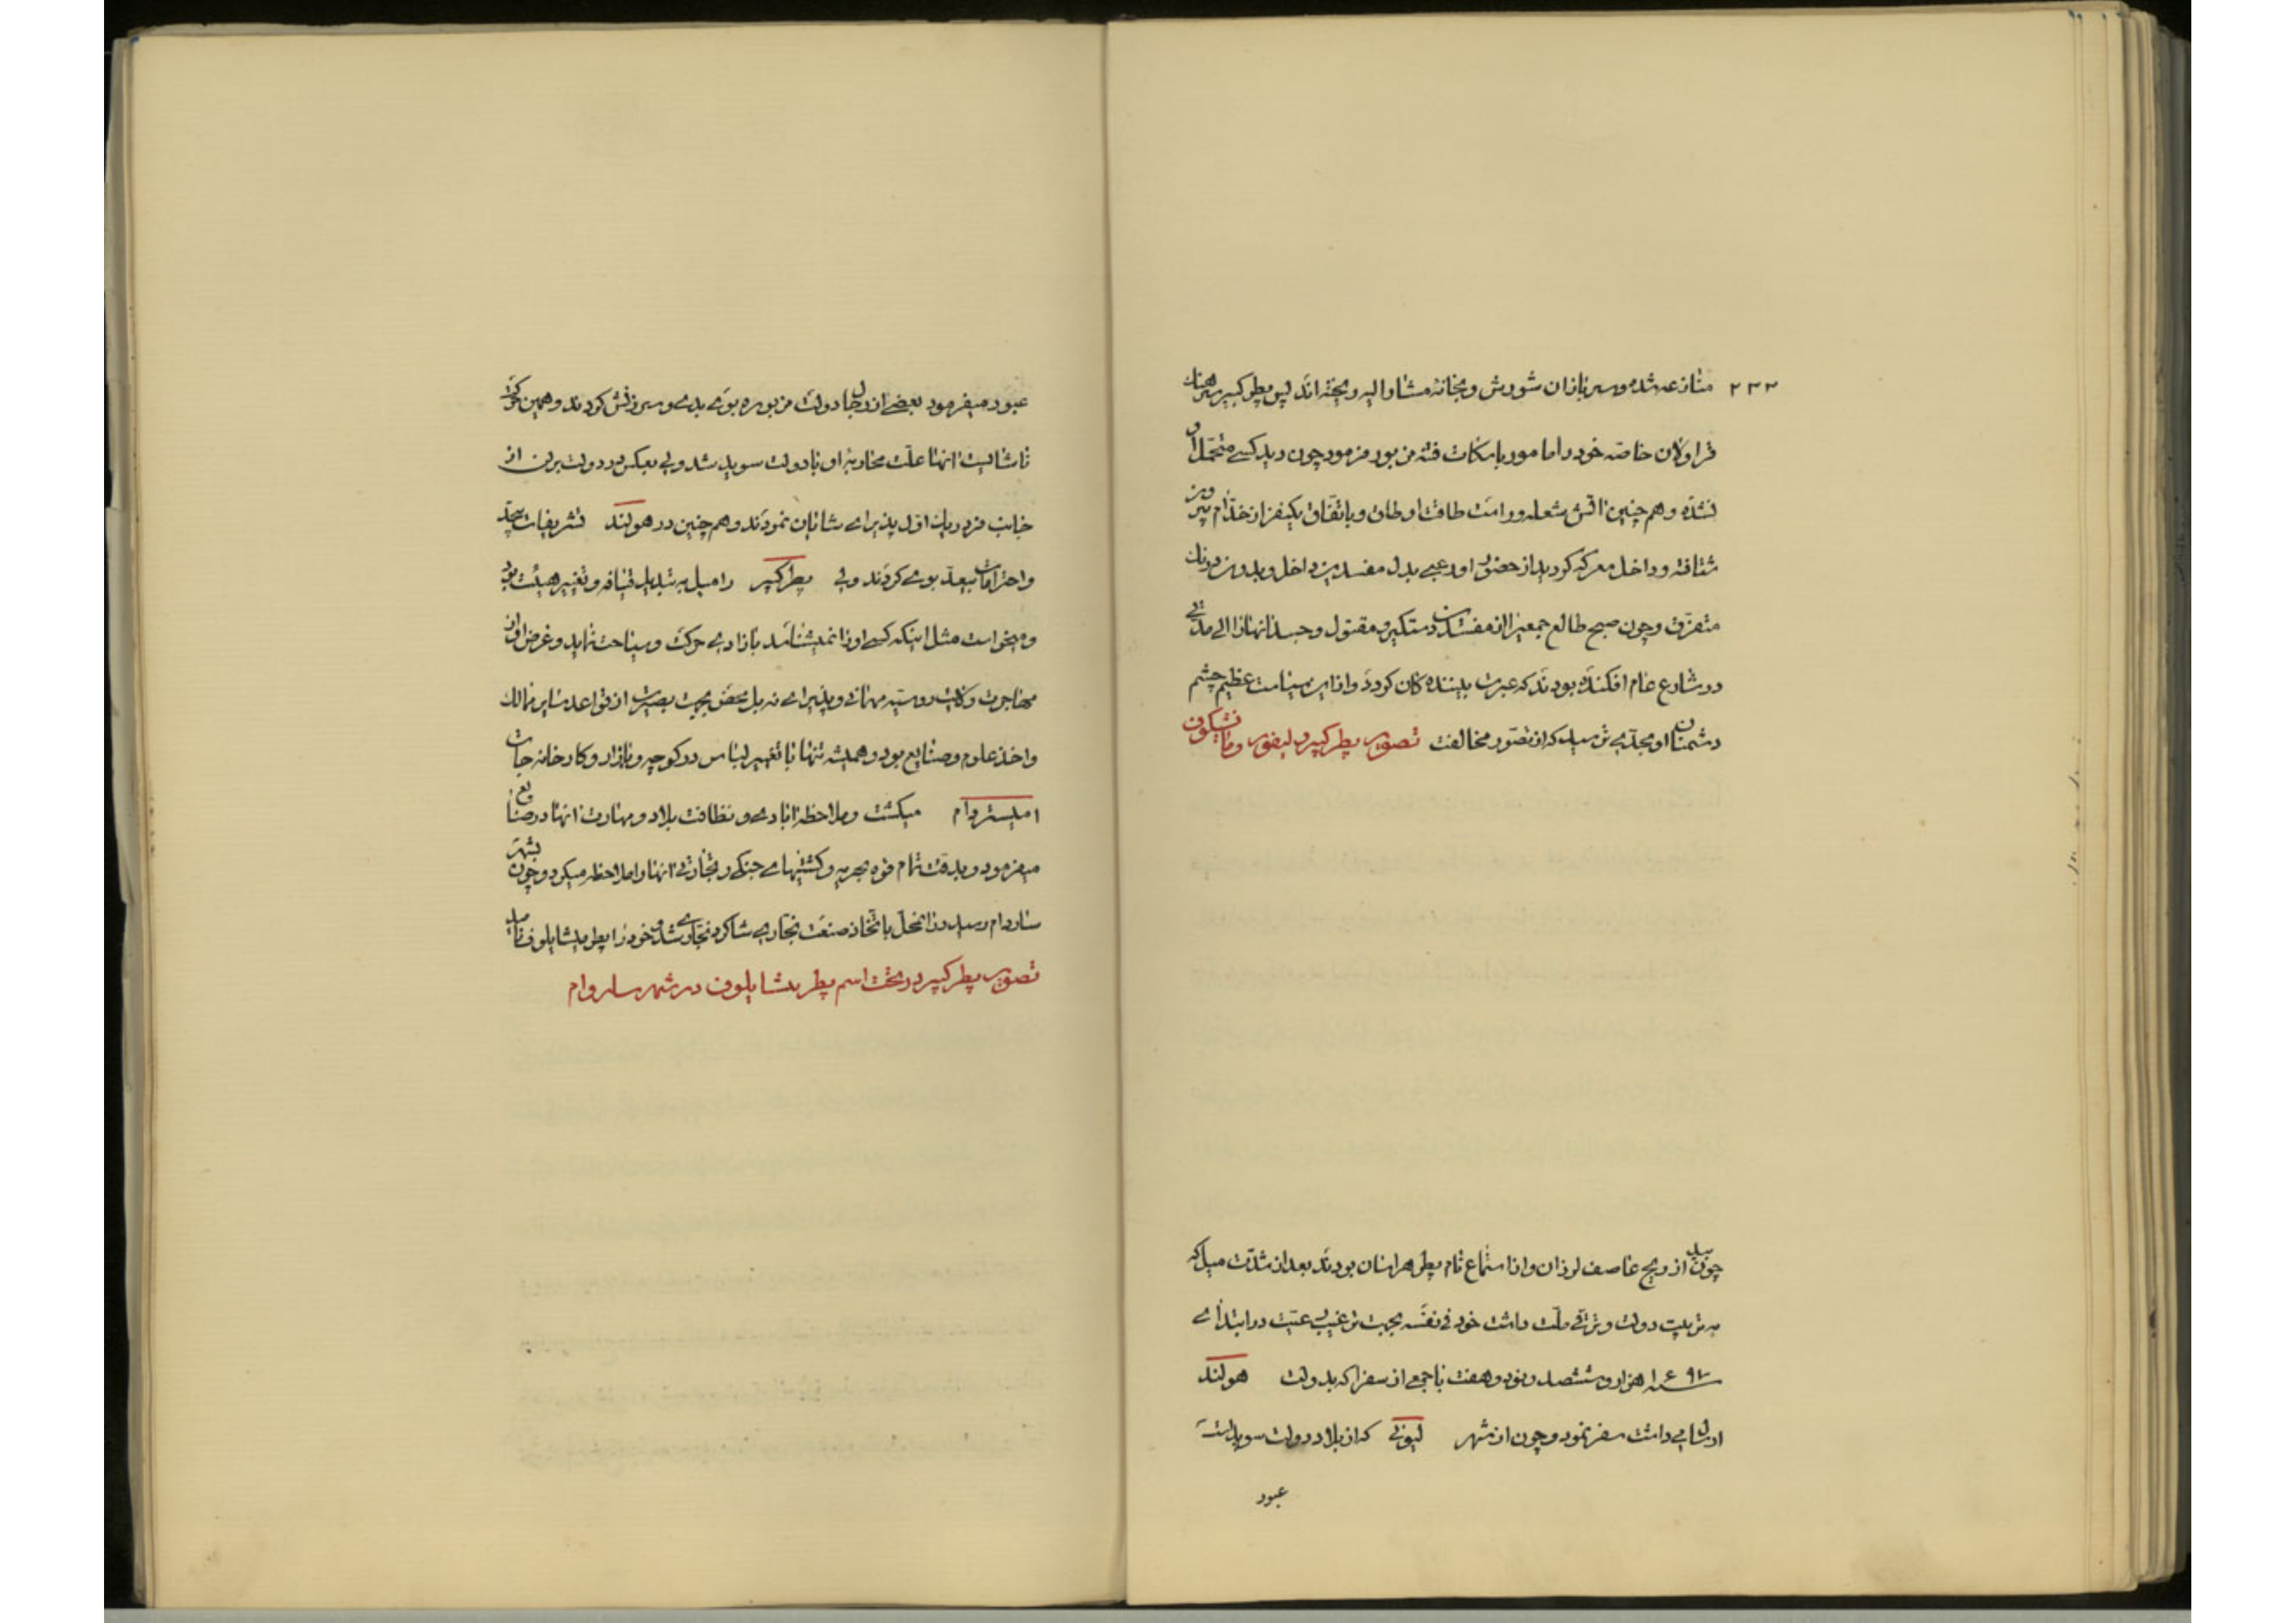 ۲۳۳ منازعه شده و سربازان شورش و بخانهٔ مشار الیه ریخته‌اند پس پطر کبیر سرهنك
قراولان خاصّه خود را مامور باسکات فتنه مزبور فرمود چون دید کسی متحمّل آن
نشده و هم چنین آتش مشعله‌ور است طاقت او طاق و باتفاق یکنفر از خدّام بیرون
شتافته و داخل معرکه گردید از حضور او رعبی بدل مفسدین داخل و بدون درنك
متفرّق و چون صبح طالع جمعی از مفسدین دستگیر و مقتول و جسد آنها تا الی مدتی
در شارع عام افکنده بودند که عبرت بیننده‌کان کردد و از این سیاست عظیم چشم
دشمنان او بحدّی ترسید که از تصوّر مخالفت تصویر پطر کبیر در لیفور و
چون بید از ریح عاصف لرزان و از استماع نام پطر هراسان بودند بعد از شدّت میل که
به تربیت دولت و ترقی ملّت داشت خود فی نفسه بجهت ترغیب رعیّت در ابتدای
سنه ۱۶۹۷ هزار و ششصد و نود و هفت با جمعی از سفرا که بدولت هولند
ارسال می داشت سفر نمود و چون از شهر لیونی که از بلاد دولت سوید است
عبور
عبور میفرمود بعضی از رجال دولت مزبوره بوی بدی و سرزنش کردند و همین حرکت
ناشایست آنها علّت محاربهٔ او با دولت سوید شد ولی بعکس در دولت برلن از
جانب فردریك اوّل پذیرای شایان نمودند و هم چنین در هولند تشریفات بیحد
و احترامات بیعدّ بوی کردند ولی پطر کبیر را میل به تبدیل قیافه و تغییر هیئت بود
و میخواست مثل اینکه کسی او را نمیشناسد بآزادی حرکت و سیاحت نماید و غرض او از
مهاجرت و کلیت روسیه مهمانی و پذیرای نه بل محض بجهت بصیرت از قواعد سایر ممالك
و اخذ علوم و صنایع بود و همیشه تنها با تغییر لباس در کوچه و بازار و کارخانه جات
امیستردام میکشت و ملاحظهٔ آبادی و نظافت بلاد و مهارت آنها در صنایع
میفرمود و بدقت تمام قوه بحریه و کشتیهای جنکی و تجارتی آنها را ملاحظه میکرد و چون بشهر
ساردام رسید در آنمحل باتخاذ صنعت نجاری شاکرد نجاری شد و خود را پطر میشایلوف نامید
تصویر پطر کبیر در تحت اسم پطر میشایلوف در شهر ساردام